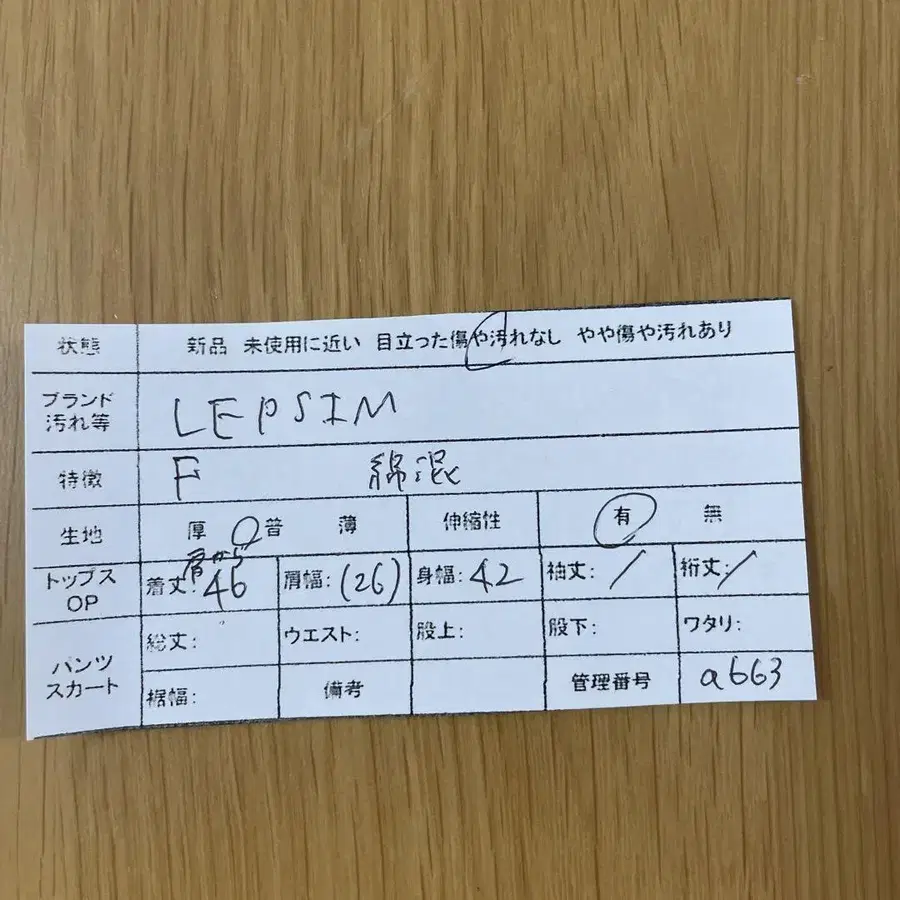 状態 新品 未使用に近い 目立った傷や汚れなし やや傷や汚れあり
ブランド
汚れ等 LEPSIM
特徴 F 綿混
生地 厚 普 薄 伸縮性 有 無
肩から
トップス
OP 着丈: 46 肩幅: (26) 身幅: 42 袖丈: / 裄丈: /
パンツ
スカート 総丈: ウエスト: 股上: 股下: ワタリ:
裾幅: 備考 管理番号 a663